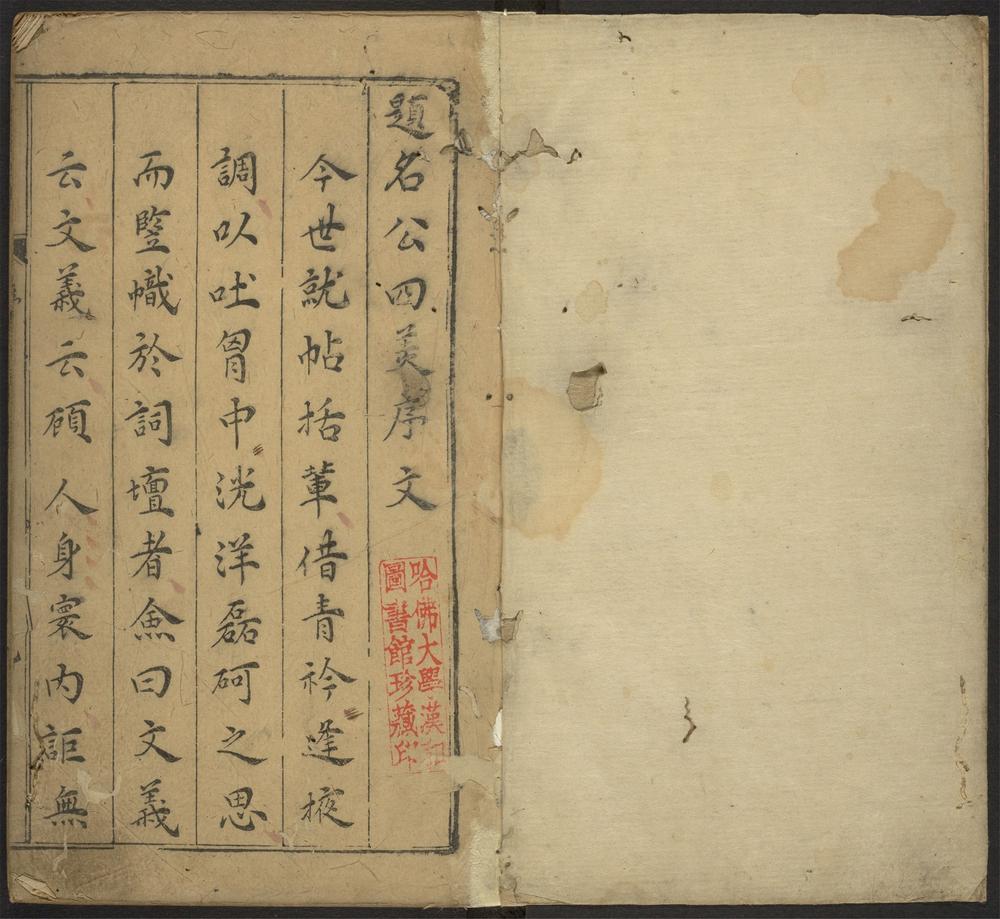 題名公四義序文
今世就帖括輩借青衿逢掖
調以吐胷中洸洋磊砢之思
而豎幟於詞壇者僉曰文義
云文義云頋人身寰内詎無
哈佛大學漢和
圖書館珍藏印